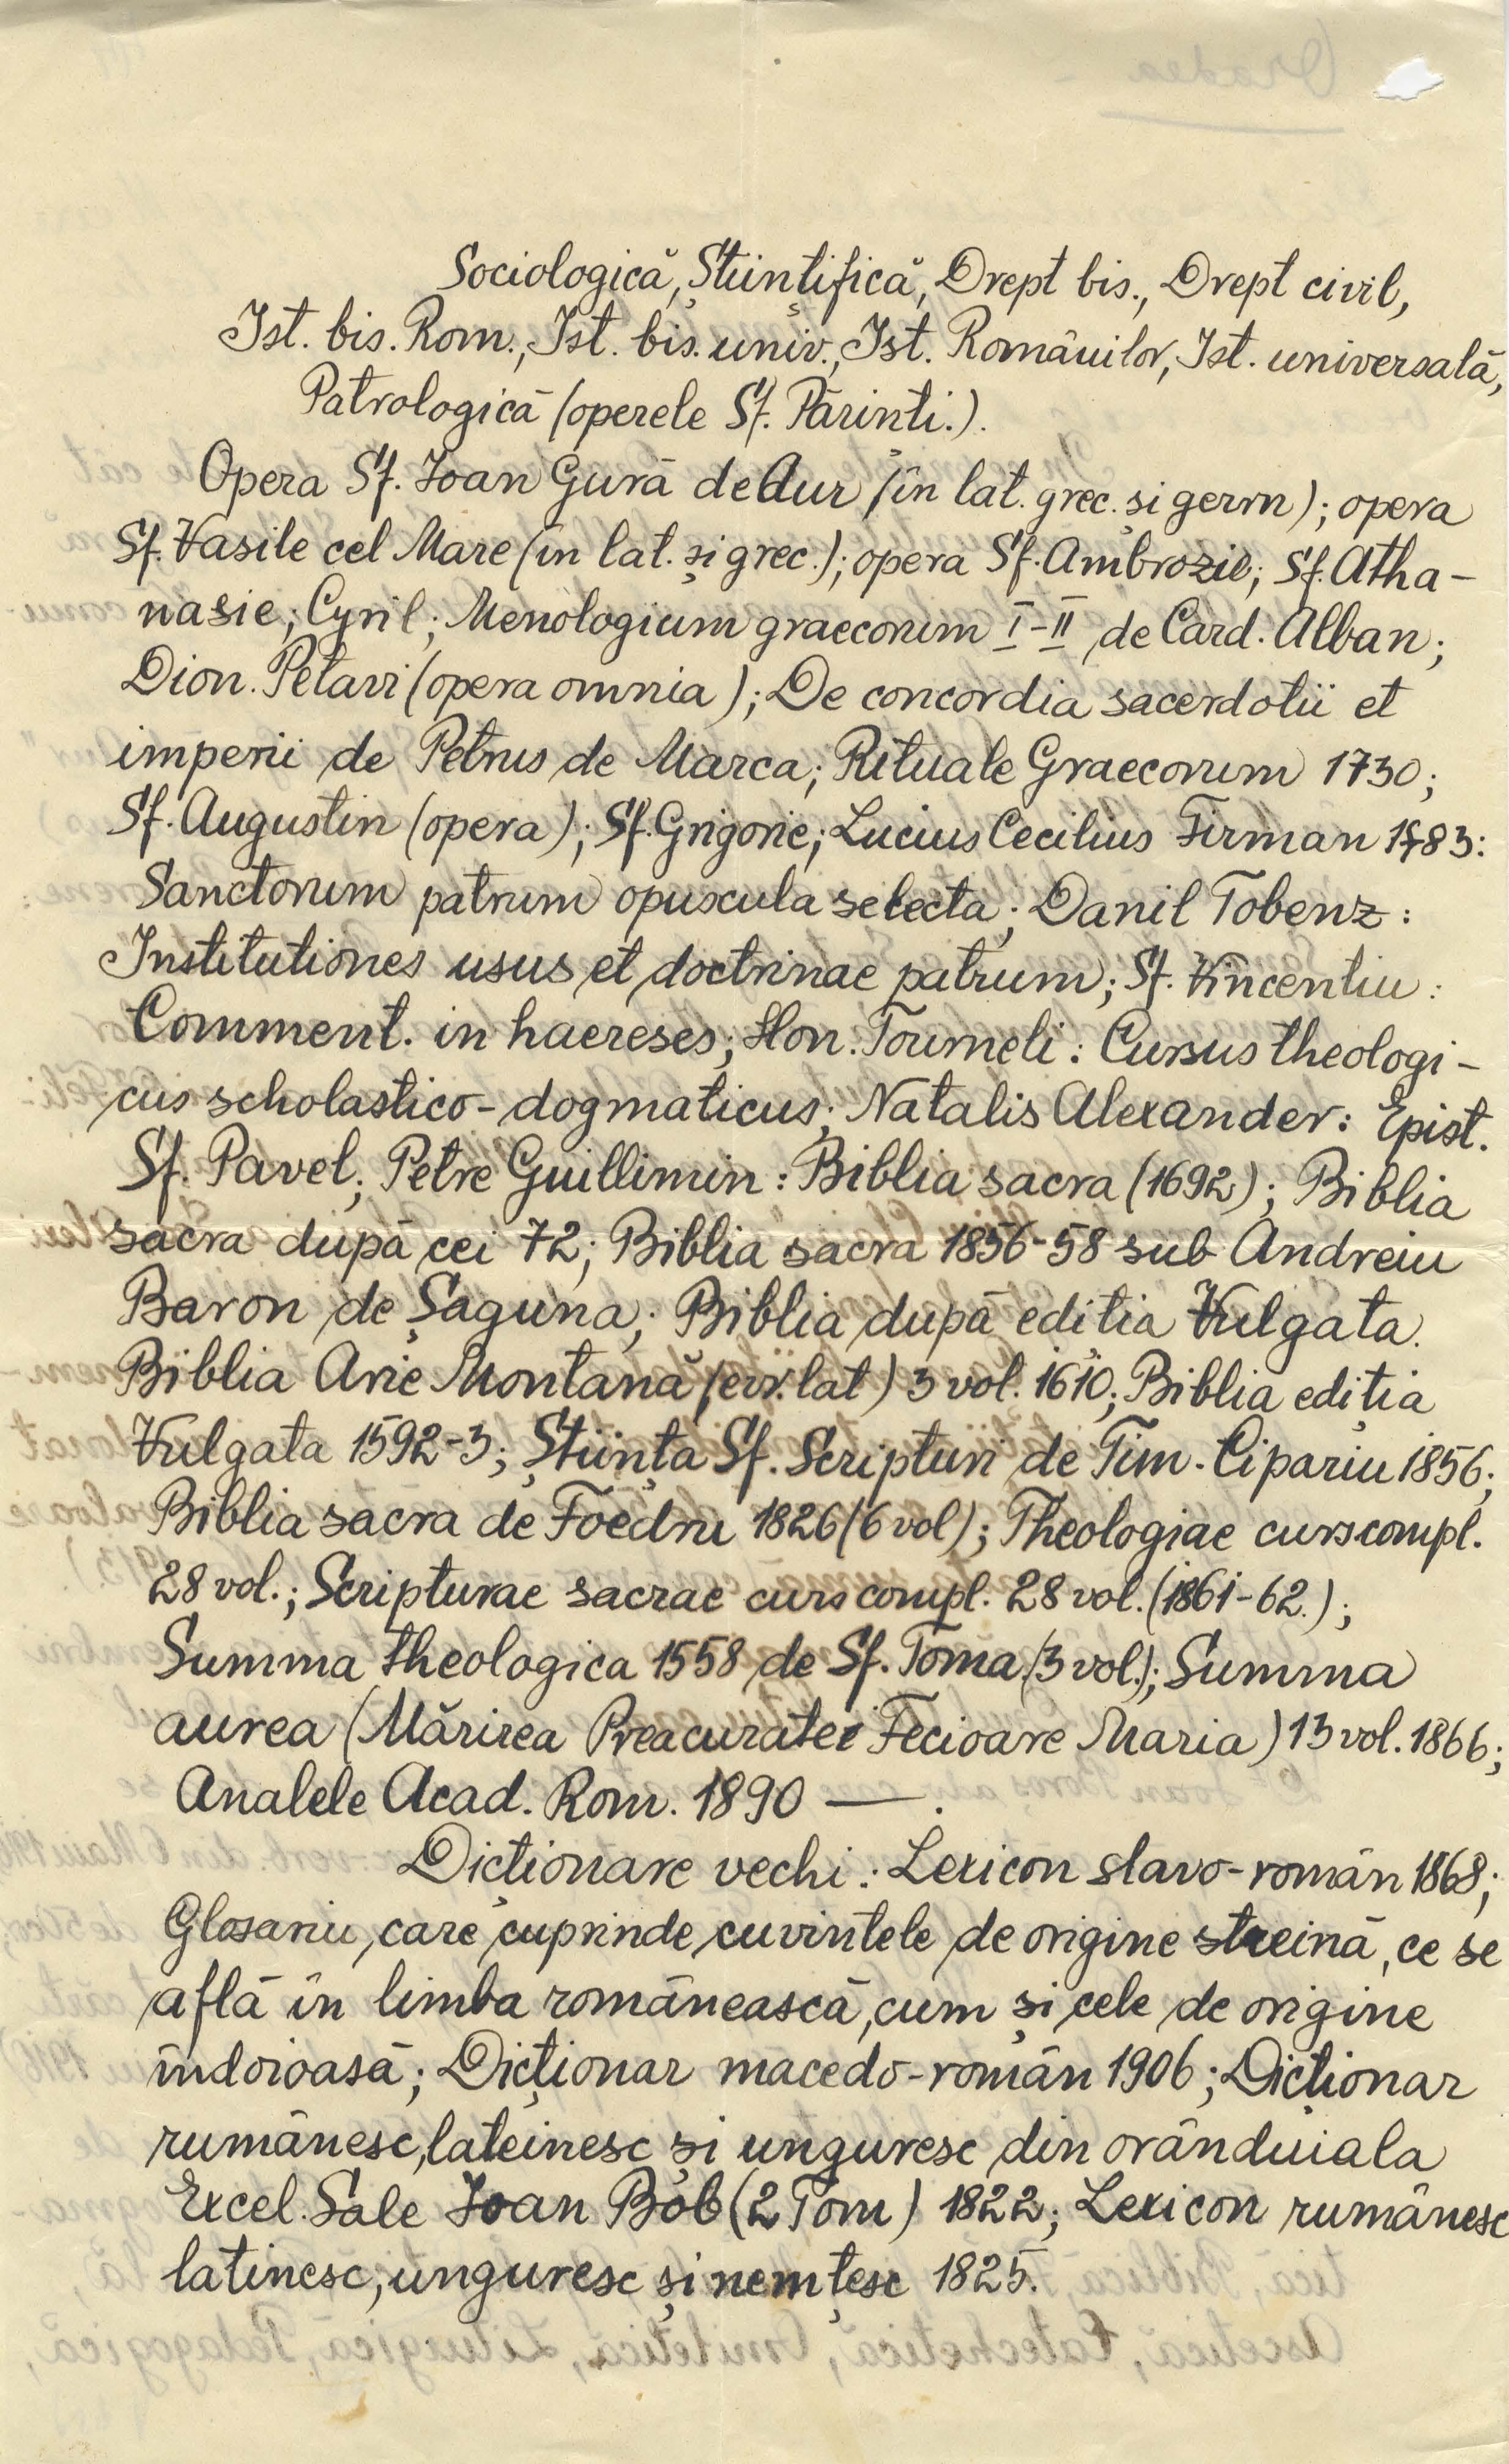 Sociologică, Științifică, Drept bis., Drept civil,
Ist. bis. Rom., Ist. bis. univ., Ist. Românilor, Ist. universală,
Patrologică (operele Sf. Părinți.).
Opera Sf. Ioan Gură de Aur (în lat. grec. și germ); opera
Sf. Vasile cel Mare (în lat. și grec.); opera Sf. Ambrozie; Sf. Atha-
nasie; Cyril; Menologium graecorum I-II de Card. Alban;
Dion. Petavi (opera omnia); De concordia sacerdotii et
imperii de Petrus de Marca; Rituale Graecorum 1730;
Sf. Augustin (opera); Sf. Grigorie; Lucius Cecilius Firman 1783:
Sanctorum patrum opuscula selecta; Danil Tobenz:
Institutiones usus et doctrinae patrum; Sf. Vincentiu:
Comment. in haereses; Hon. Tourneli: Cursus theologi-
cus scholastico-dogmaticus; Natalis Alexander: Epist.
Sf. Pavel; Petre Guillimin: Biblia sacra (1692); Biblia
sacra după cei 72; Biblia sacra 1856-58 sub Andreiu
Baron de Șaguna; Biblia după ediția Vulgata.
Biblia Arie Montană (evr. lat) 3 vol. 1610; Biblia ediția
Vulgata 1592-3; Știința Sf. Scripturi de Tim. Cipariu 1856;
Biblia sacra de 1826 (6 vol); Theologiae curs compl.
28 vol.; Scripturae sacrae curs compl. 28 vol. (1861-62.);
Summa theologica 1558 de Sf. Toma (3 vol.); Summa
aurea (Mărirea Preacuratei Fecioare Maria) 13 vol. 1866;
Analele Acad. Rom. 1890 —.
Dicționare vechi: Lexicon slavo-român 1868;
Glosariu, care cuprinde cuvintele de origine streină, ce se
află în limba românească, cum și cele de origine
îndoioasă; Dicționar macedo-român 1906; Dicționar
rumânesc, lateinesc și unguresc din orânduiala
Excel. Sale Ioan Bob (2 Tom) 1822; Lexicon rumânesc
latinesc, unguresc și nemțesc 1825.